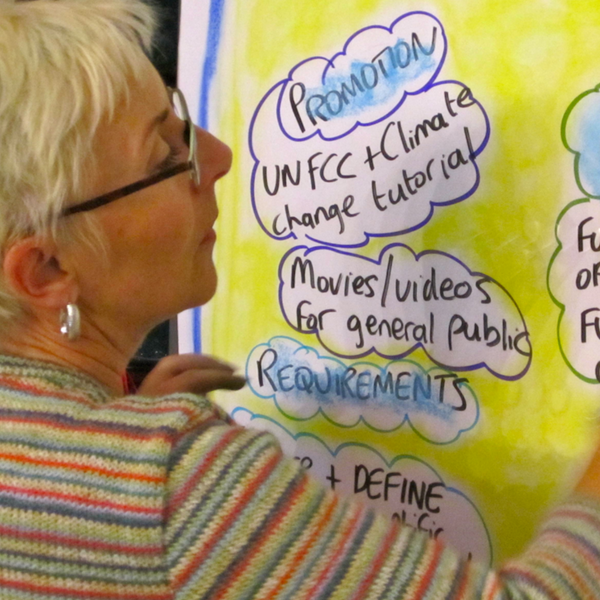 PROMOTION
UNFCC + Climate
change tutorial
Movies/videos
for general public
REQUIREMENTS
+ DEFINE
FU
OF
FU